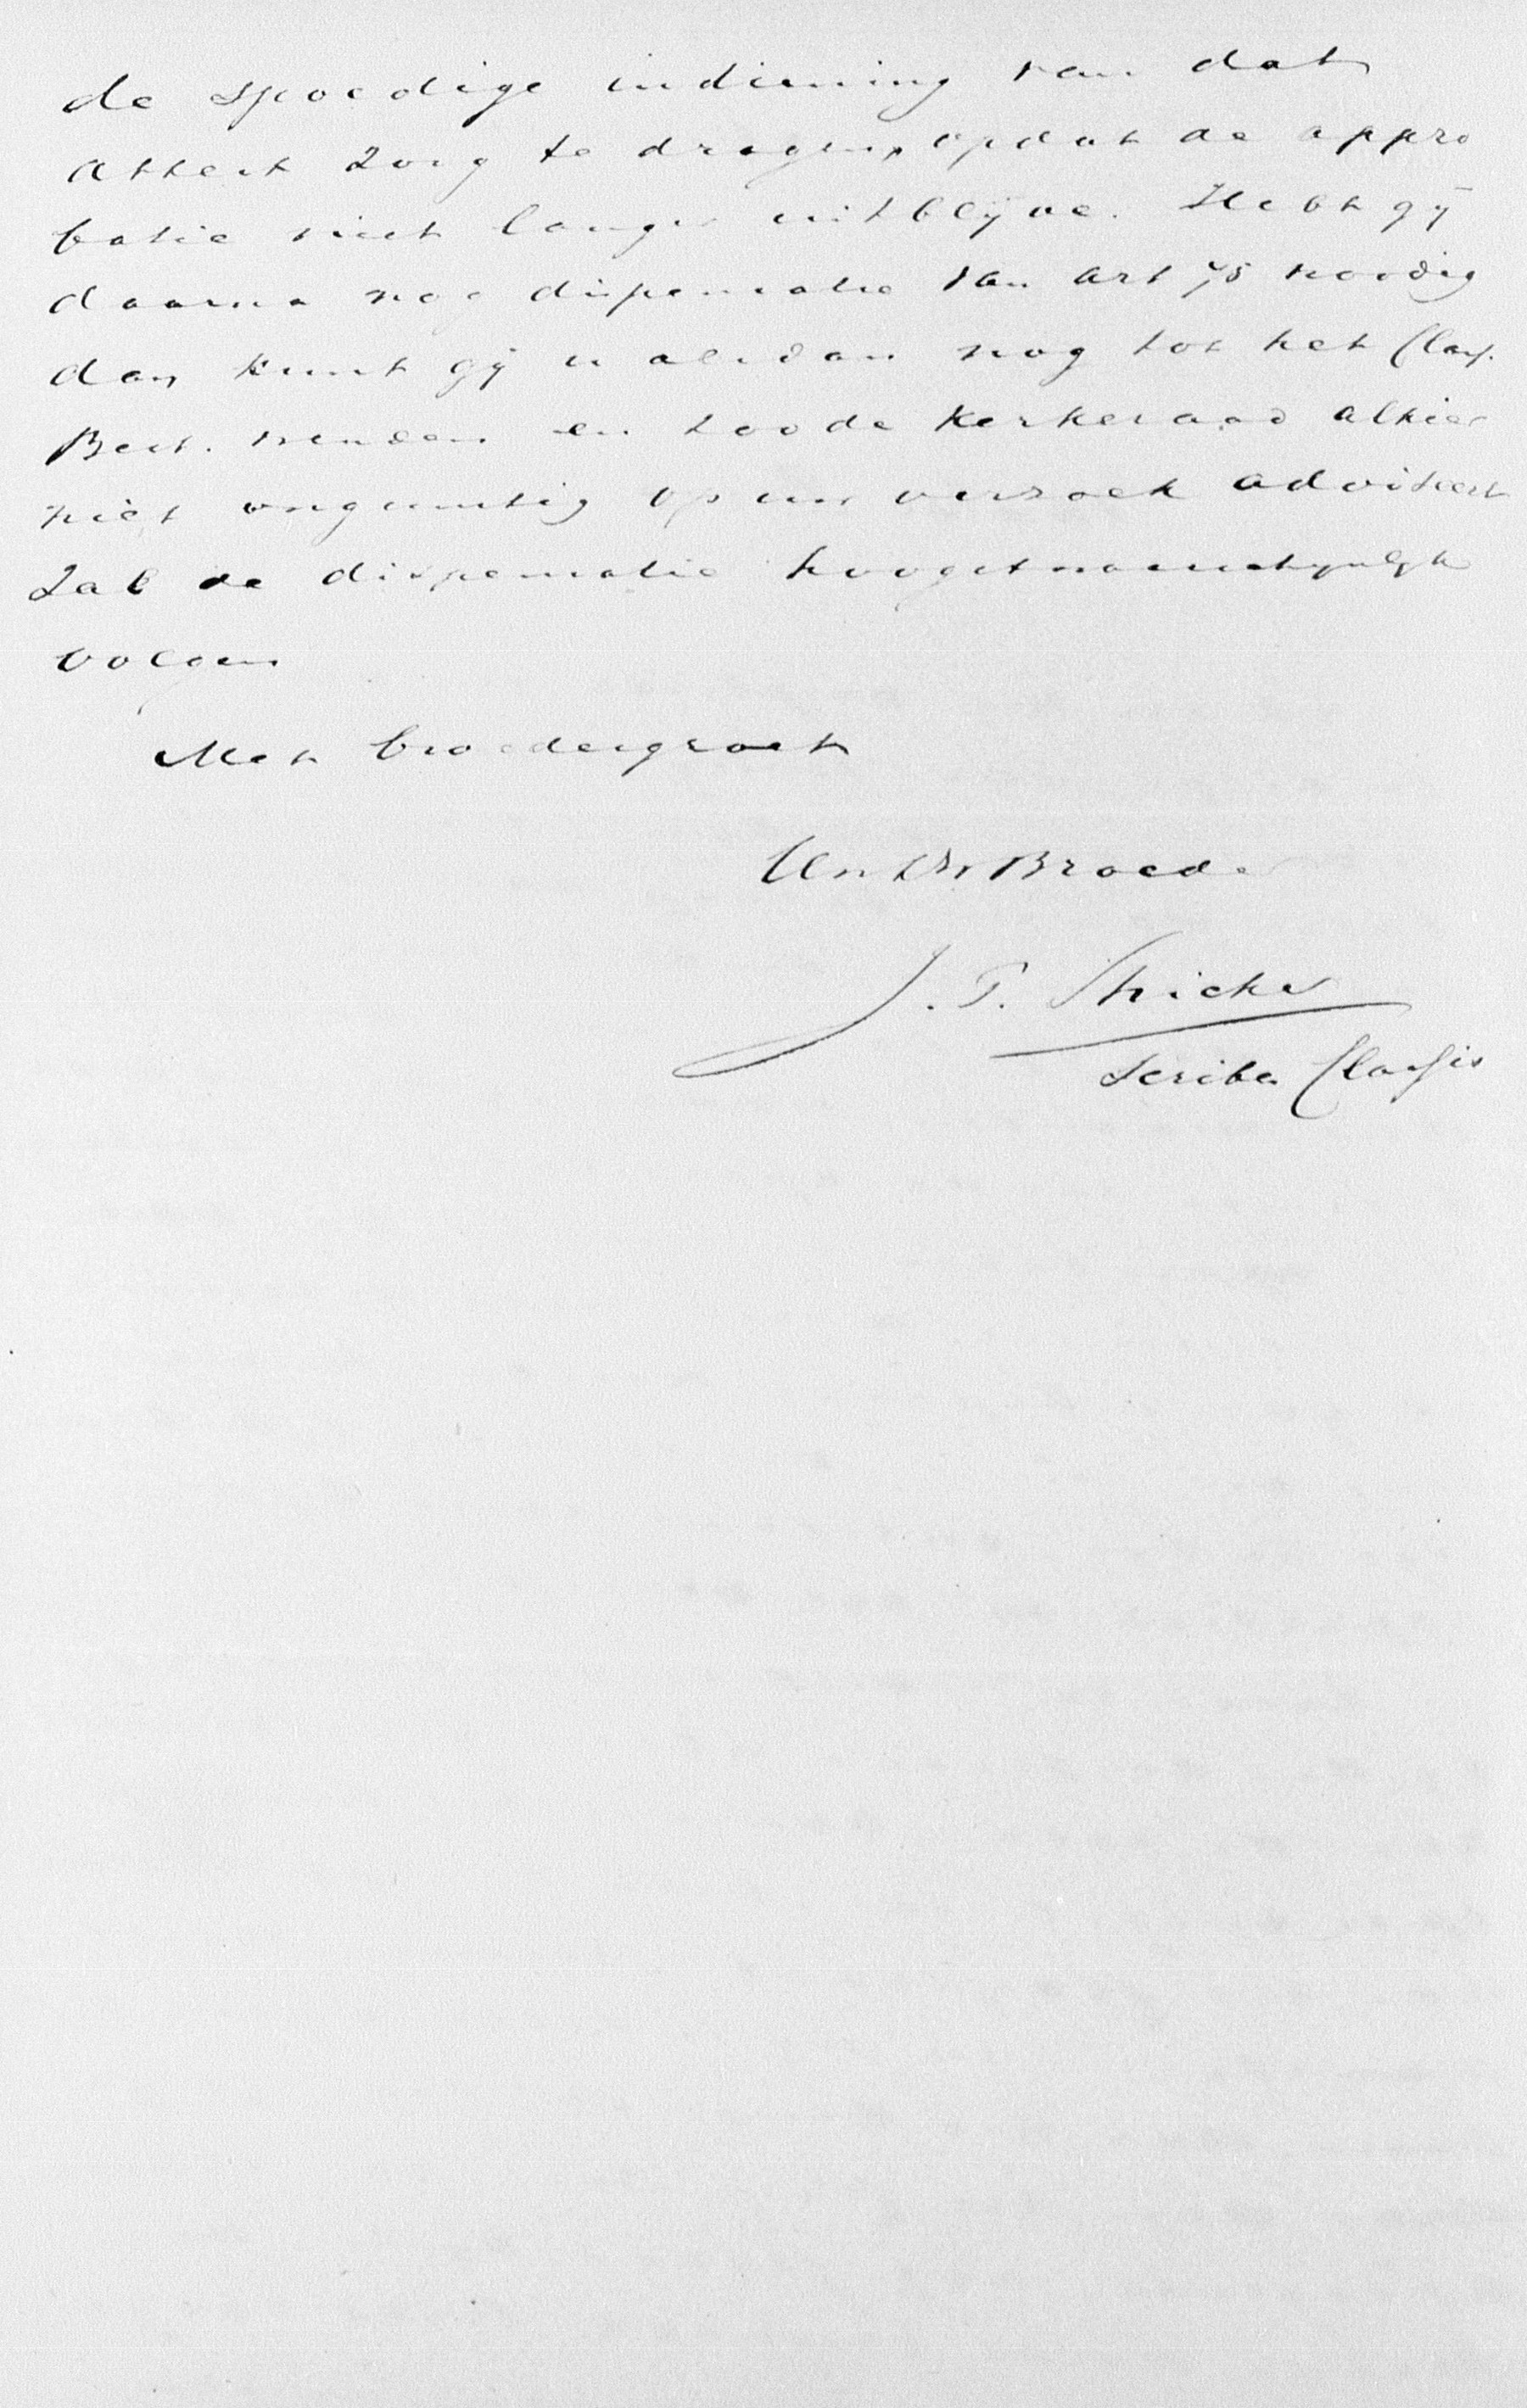 de spoedige indiening van dat
attest zorg te dragen, opdat de appro
batie niet langer uitblijve. Hebt gij
daarna nog dispensatie van art 75 noodig
dan kunt gij u alsdan nog tot het Class.
Best. wenden en zoo de Kerkeraad alhier
niet ongunstig op uw verzoek adviseert
zal de dispensatie hoogstwaarschijnlijk
volgen
Met broedergroet
Uw Dw Broeder
J. P. Stricker
Scriba Classis